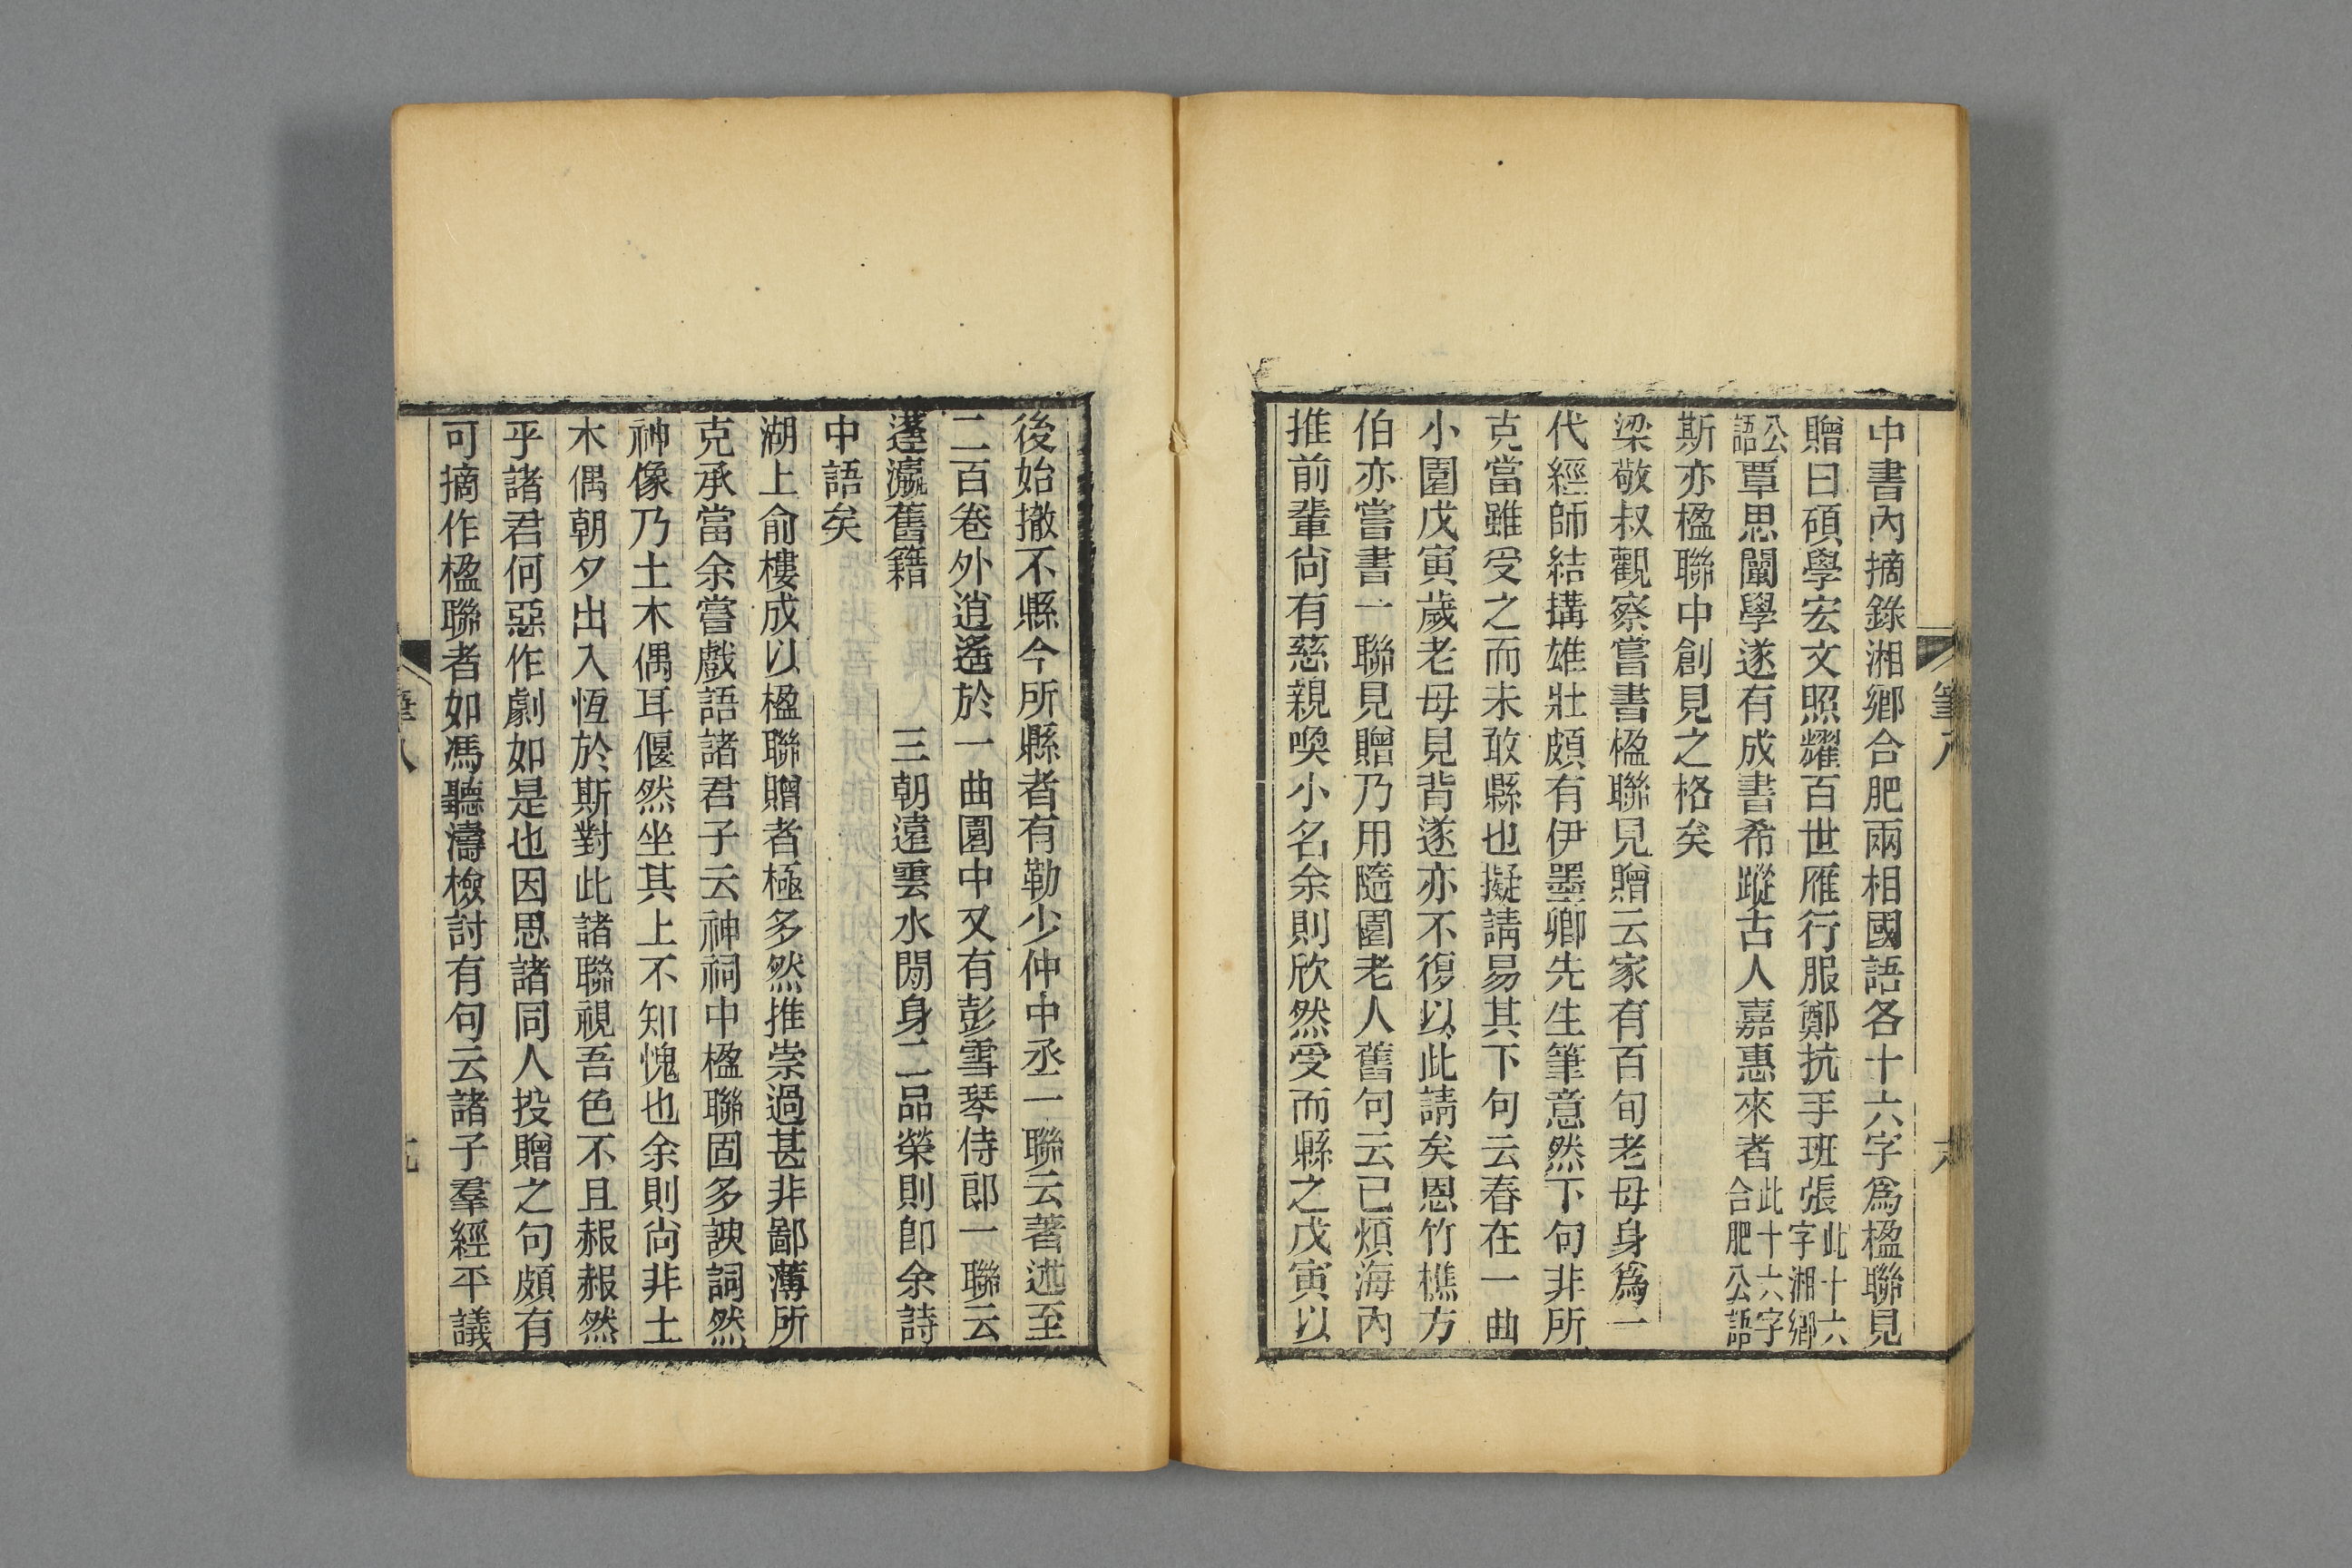 中書內摘錄湘鄉合肥兩相國語各十六字爲楹聯見
贈曰碩學宏文照耀百世雁行服鄭抗手班張此十六字湘鄉
公語覃思闡學遂有成書希蹤古人嘉惠來者此十六字合肥公語
斯亦楹聯中創見之格矣
梁敬叔觀察嘗書楹聯見贈云家有百旬老母身爲一
代經師結搆雄壯頗有伊墨卿先生筆意然下句非所
克當雖受之而未敢縣也擬請易其下句云春在一曲
小園戊寅歲老母見背遂亦不復以此請矣恩竹樵方
伯亦嘗書一聯見贈乃用隨園老人舊句云已煩海內
推前輩尙有慈親喚小名余則欣然受而縣之戊寅以
筆八
後始撤不縣今所縣者有勒少仲中丞一聯云著述至
二百卷外逍遙於一曲園中又有彭雪琴侍郎一聯云
蓬瀛舊籍 三朝遠雲水閒身二品榮則卽余詩
中語矣
湖上俞樓成以楹聯贈者極多然推崇過甚非鄙薄所
克承當余嘗戲語諸君子云神祠中楹聯固多諛詞然
神像乃土木偶耳偃然坐其上不知愧也余則尙非土
木偶朝夕出入恆於斯對此諸聯視吾色不且赧赧然
乎諸君何惡作劇如是也因思諸同人投贈之句頗有
可摘作楹聯者如馮聽濤檢討有句云諸子羣經平議
筆八